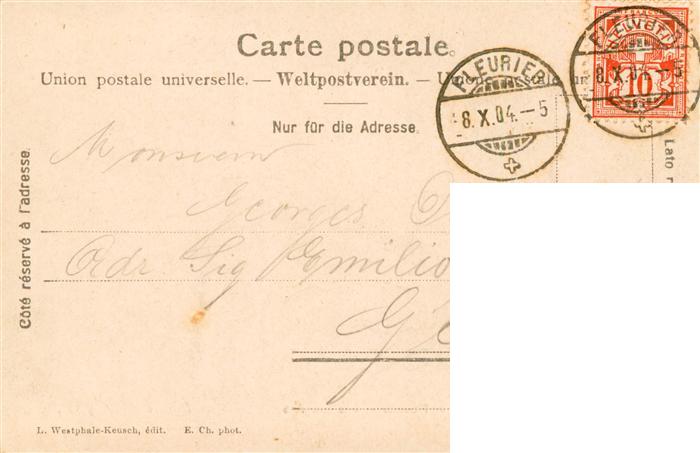 Carte postale.
Union postale universelle. — Weltpostverein. —
Nur für die Adresse.
FLEURIER
8.X.04.—5
HELVETIA
10
FLEURIER
8.X.04.—5
Côté réservé à l'adresse.
Lato
Monsieur
Georges
Adr Sig Emilio
L. Westphale-Keusch, édit. E. Ch. phot.